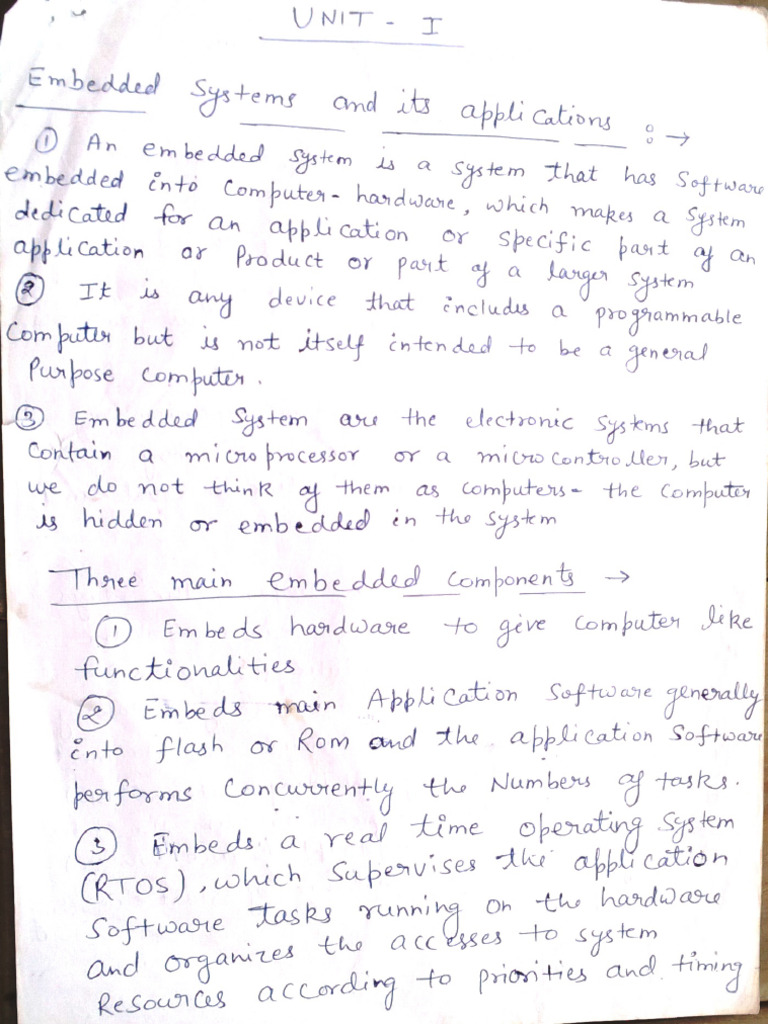 UNIT - I
Embedded Systems and its applications :→
① An embedded system is a system that has Software
embedded into Computer-hardware, which makes a System
dedicated for an application or specific part of an
application or Product or part of a larger system
② It is any device that includes a programmable
Computer but is not itself intended to be a general
Purpose Computer.
③ Embedded System are the electronic systems that
Contain a microprocessor or a microcontroller, but
we do not think of them as computers- the Computer
is hidden or embedded in the system
Three main embedded components →
① Embeds hardware to give Computer like
functionalities
② Embeds main Application Software generally
into flash or Rom and the application Software
performs Concurrently the Numbers of tasks.
③ Embeds a real time operating System
(RTOS), which Supervises the application
Software tasks running on the hardware
and organizes the accesses to system
Resources according to priorities and timing